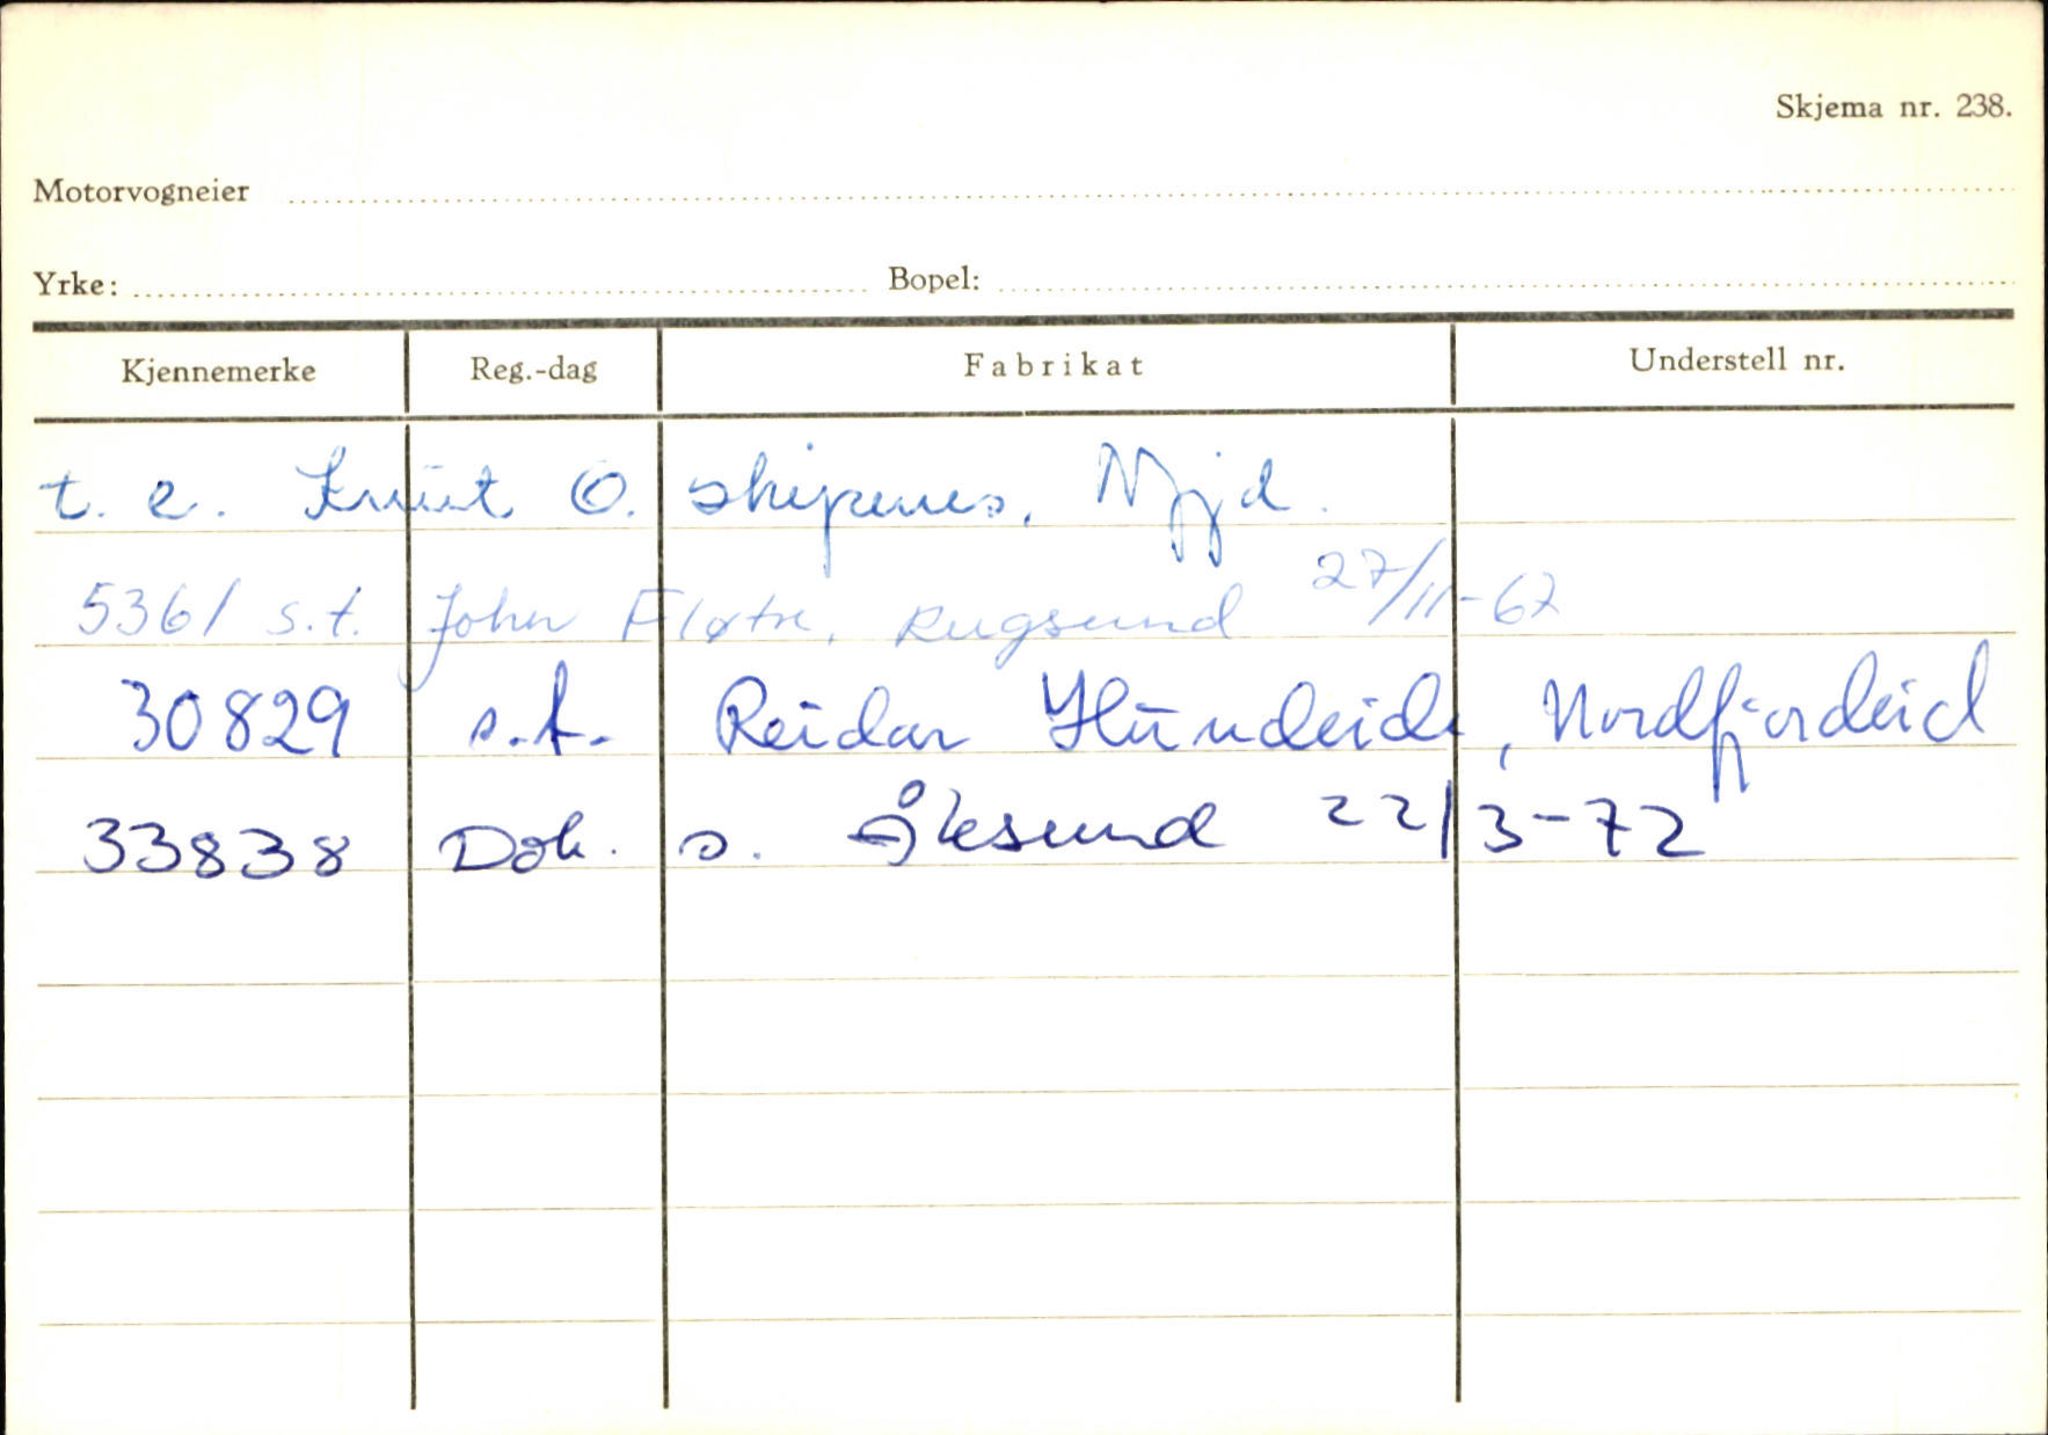 Skjema nr. 238.
Motorvogneier
Yrke: Bopel:
Kjennemerke Reg.-dag Fabrikat Understell nr.
t. e. Knut O. Skipenes, Nfjd.
5361 s.t. John Fløtre, Rugsund 27/11-67
30829 s.t. Reidar Hundeide, Nordfjordeid
33838 Dok. s. Ålesund 22/3-72